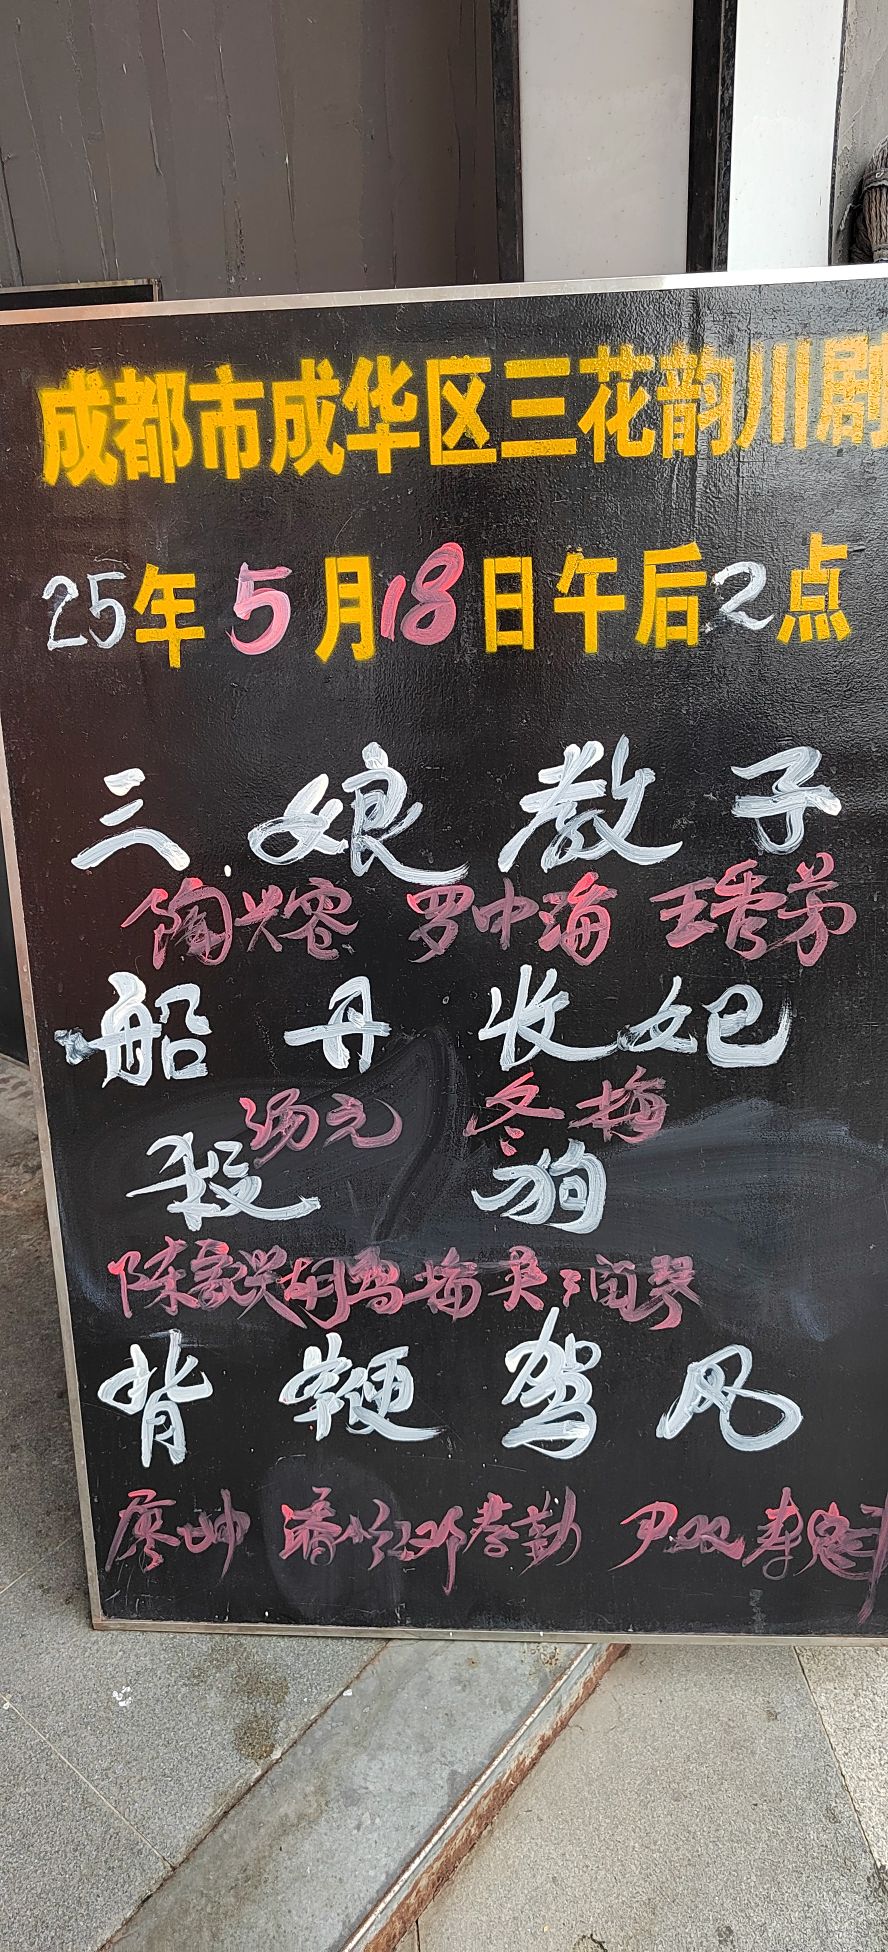 成都市成华区三花韵川剧
25年5月18日午后2点
三娘教子
陶兴容 罗中海 王秀芬
船舟收妃
汤元 冬梅
殺狗
陈家兴 胡 梅
背鞭驾风
廖帅 潘 邓孝勤 尹双 李